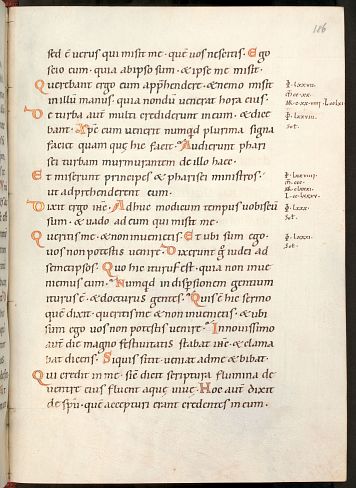 186
sed ē verus qui misit me · quē vos nescitis. Ego
scio eum · quia ab ipso sum · & ipse me misit.
Querebant ergo eum app̄hendere · & nemo misit
in illū manus · quia nondū venerat hora eius.
De turba autē multi crediderunt in eum · & dice
bant · Xp̄c cum venerit numqd plurima signa
faciet quam quę hic facit · Audierunt phari
sei turbam murmurantem de illo haec.
Et miserunt principes & pharisei ministros
ut adprehenderent eum.
Dixit ergo ihc · Adhuc modicum tempus vobiscū
sum · & vado ad eum qui misit me.
Queritis me · & non invenietis · Et ubi sum ego ·
vos non potestis venire · Dixerunt g̊ iudei ad
semetipsos · Quo hic iturus est · quia non inve
niemus eum · Numqd in dispersionem gentium
iturus ē · & docturus gentes · Quis ē hic sermo
quē dixit · queritis me & non invenietis · & ubi
sum ego vos non potestis venire · In novissimo
autē die magno festivitatis stabat ihc · & clama
bat dicens · Siquis sitit · veniat ad me & bibat.
Qui credit in me · sic̄ dicit scriptura flumina de
ventre eius fluent aquę vivę · Hoc autē dixit
de sp̄u · quē accepturi erant credentes in eum ·